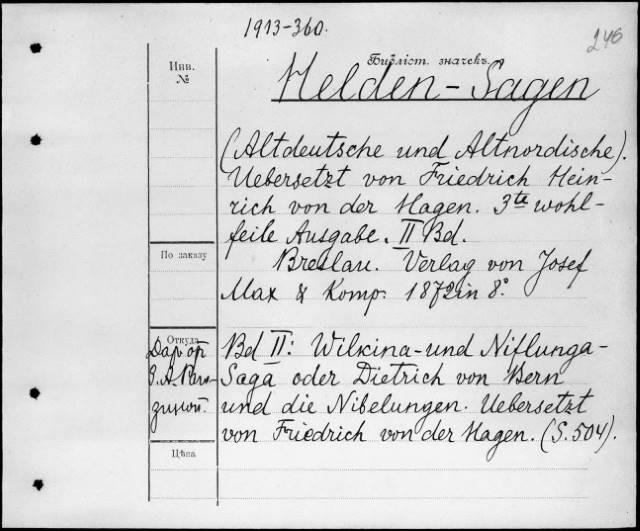 1913-360.
246
Библіот. значекъ
Инв.
№
Helden-Sagen
(Altdeutsche und Altnordische).
Uebersetzt von Friedrich Hein-
rich von der Hagen. 3te wohl-
feile Ausgabe. II Bd.
По заказу
Breslau. Verlag von Josef
Max & Komp. 1872 in 8°.
Откуда
Даръ от
Bd II: Wilkina- und Niflunga-
Saga oder Dietrich von Bern
und die Nibelungen. Uebersetzt
von Friedrich von der Hagen. (S. 504).
Цѣна